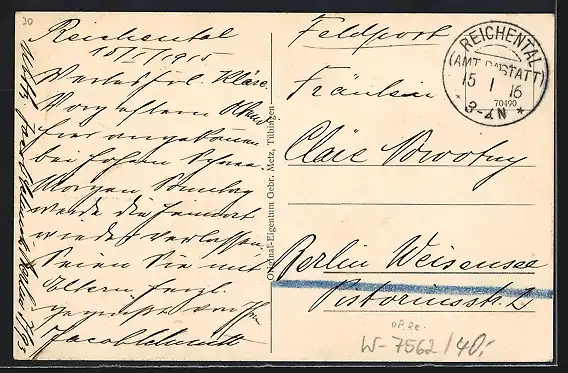 30
Reichental
15/I/1915
Wertes Frl. Kläre.
Vorgestern Abend
hier angekommen
bei hohem Schnee.
Morgen Sonntag
werde die Heimat
wieder verlassen.
Seien Sie mit
Eltern herzl.
gegrüsst von Ihrem
Jacob Schmidt
Original-Eigentum Gebr. Metz, Tübingen
Feldpost
REICHENTAL
(AMT RASTATT)
15 1 16
* 3-4N *
70490
Fräulein
Cläre Nowotny
Berlin Weisensee
Pistoriusstr. 2
W-7562/40,-